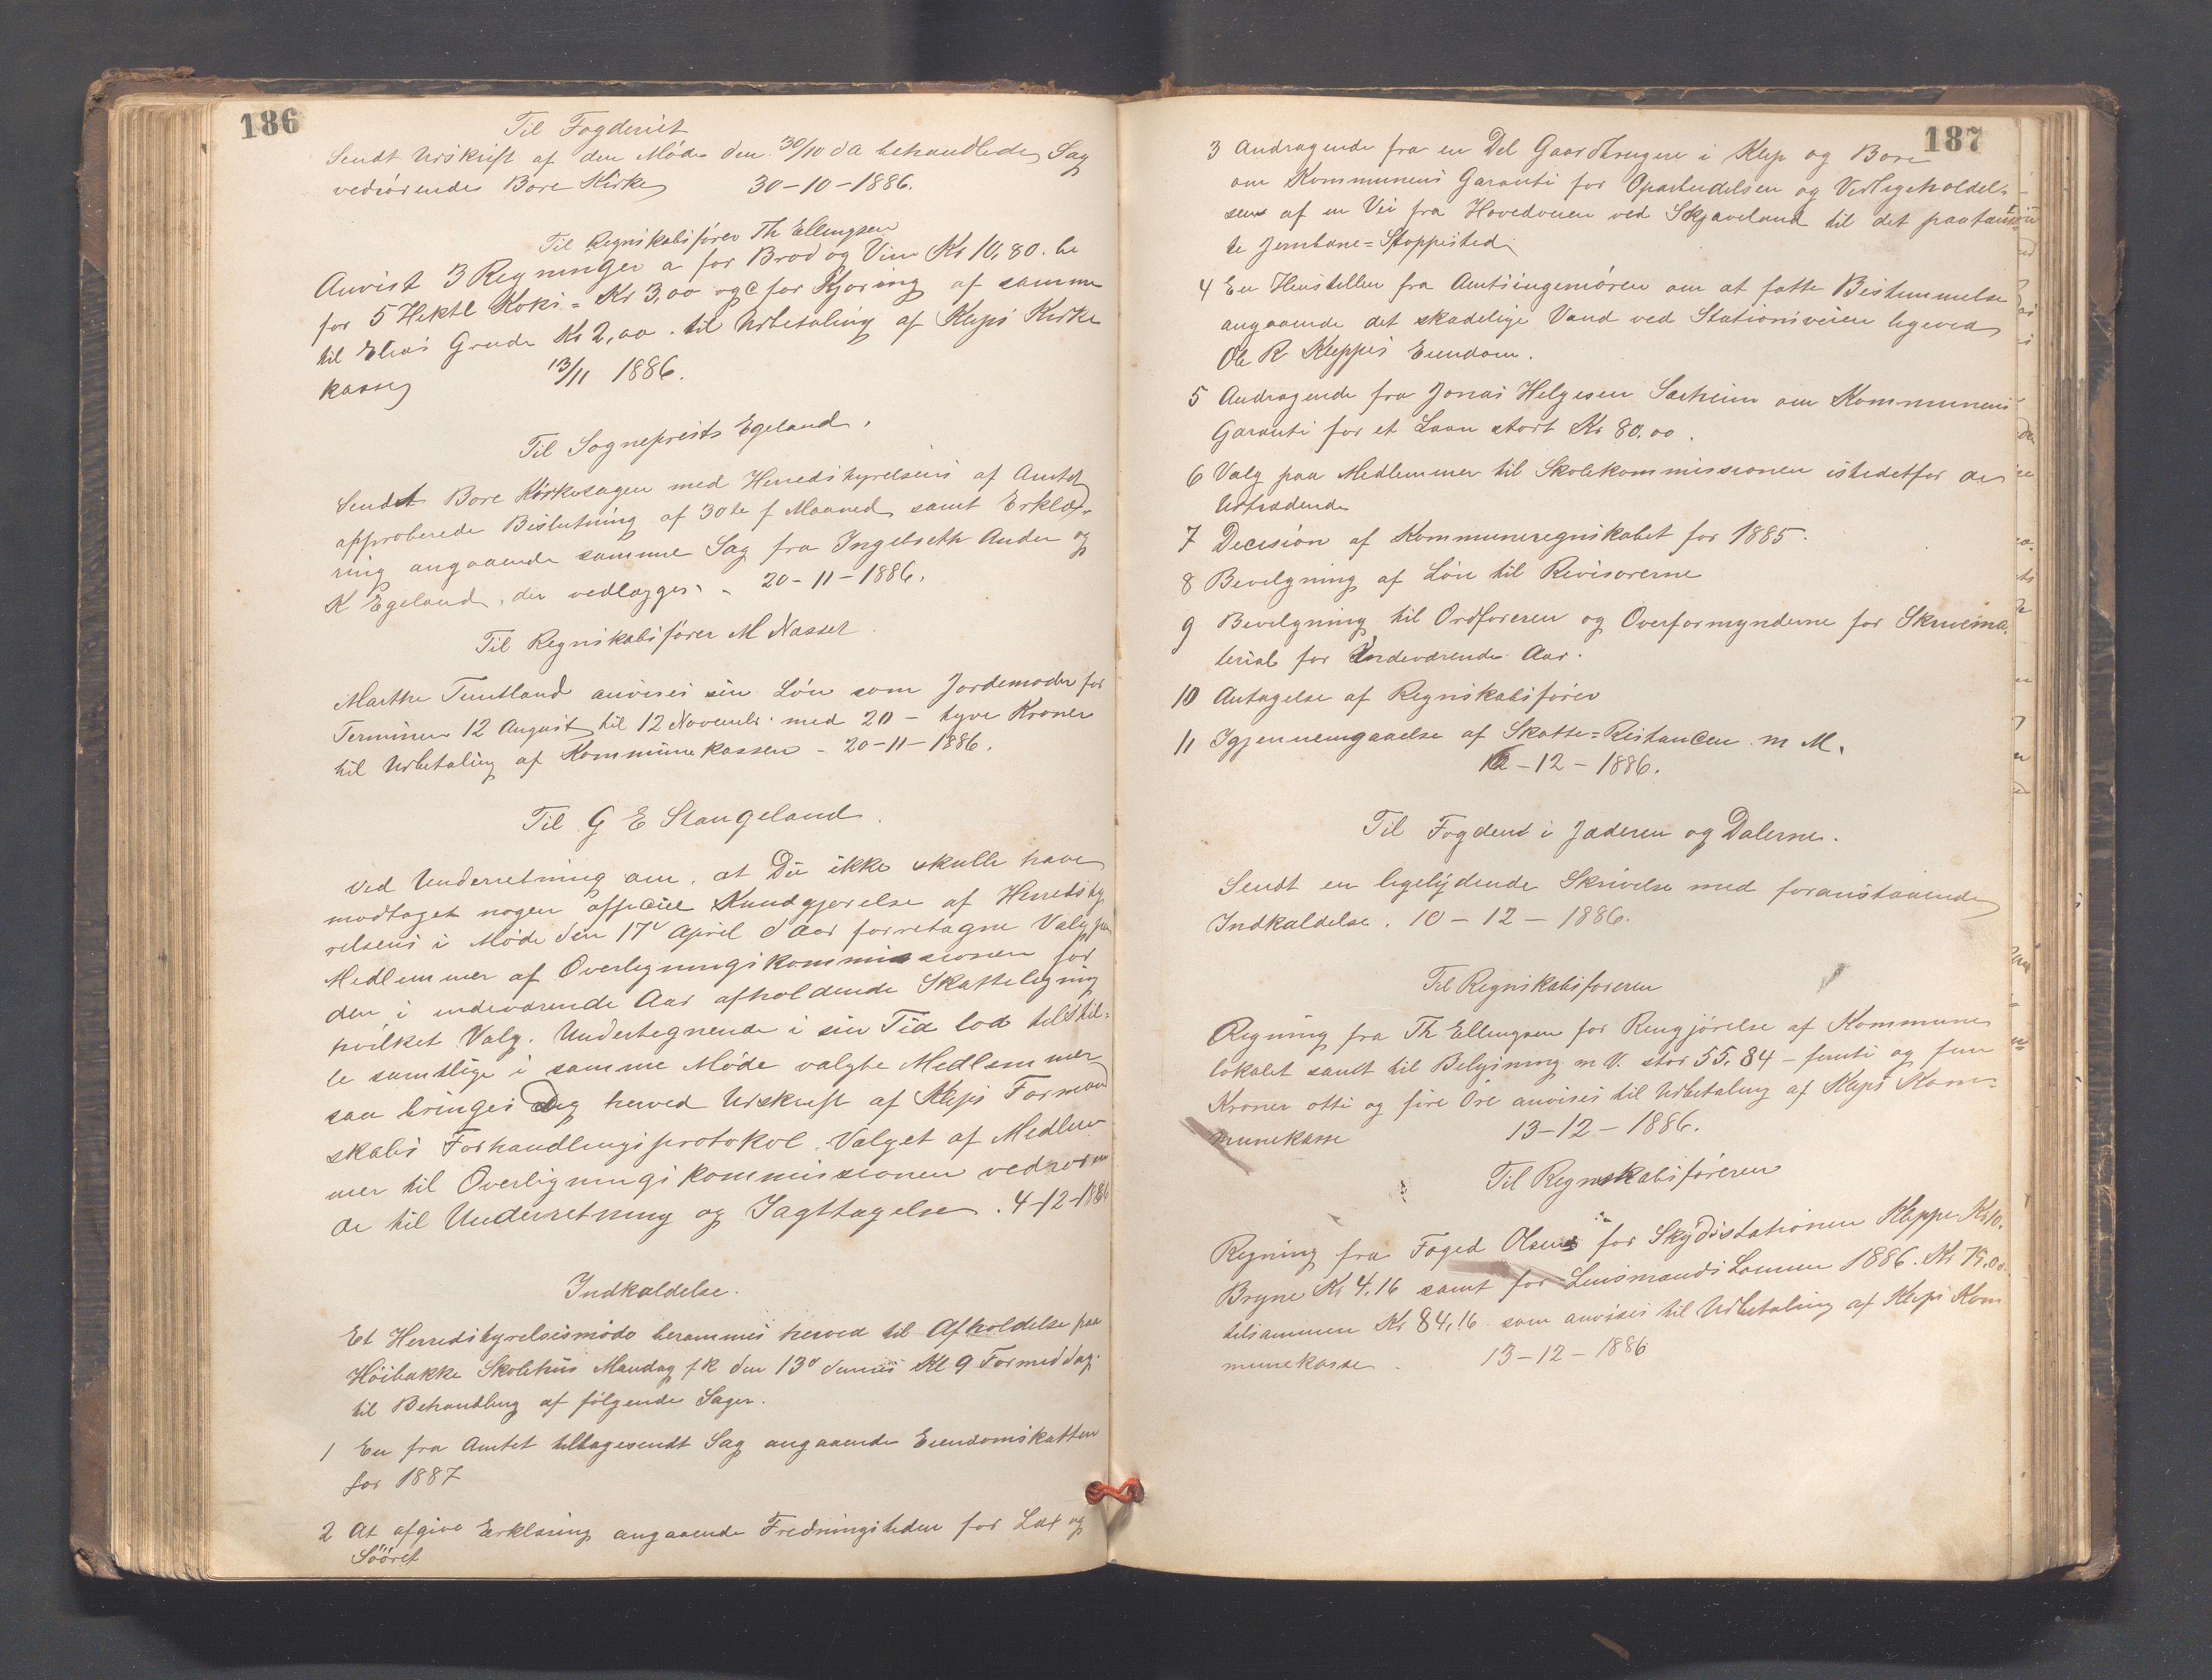 186
Til Fogderiet
Sendt Udskrift af den Møde den 30/10 da behandlede Sag
vedrørende Bore Kirke 30-10-1886.
Til Regnskabsfører Th Ellingsen
Anvist 3 Regninger a for Brød og Vin Kr 10,80. be
for 5 Hektl Koks = Kr 3,00 og c for Kjøring af samme
til Elias Grude Kr 2,00. til Udbetaling af Kleps Kirke
kasse 13/11 1886.
Til Sogneprests Egeland.
Sendt Bore Kirkesagen med Herredstyrelsens af Amtet
approberede Beslutning af 30te f Maaned, samt Erklæ-
ring angaaende samme Sag fra Ingebreth Anden og
K Egeland, der vedlægges. 20-11-1886.
Til Regnskabsfører M Nasset.
Marthe Tuntland anvises sin Løn som Jordemoder for
Terminen 12 August til 12 Novembr. med 20 - tyve Kroner
til Udbetaling af Kommunekassen - 20-11-1886.
Til G E Stangeland.
Ved Underretning om, at Du ikke skulle have
modtaget nogen officiel Kundgjørelse af Herredsty
relsens i Møde den 17de April d Aar foretagne Valg paa
Medlemmer af Overligningskommissionen for
den i indeværende Aar afholdende Skatteligning
hvilket Valg. Undertegnende i sin Tid lod tilstil-
le samtlige i samme Møde valgte Medlemmer
saa bringes Dig herved Udskrift af Kleps Formand
skabs Forhandlingsprotokol. Valget af Medlem
mer til Overligningskommissionen vedrøren
de til Underretning og Iagttagelse. 4-12-1886
Indkaldelse.
Et Herredstyrelsesmøde berammes herved til Afholdelse paa
Høibakke Skolehus Mandag f.k. den 13de dennes Kl 9 Formiddag.
til Behandling af følgende Sager.
1 En fra Amtet tilbagesendt Sag angaaende Eiendomsskatten
for 1887
2 At afgive Erklæring angaaende Fredningstiden for Lax og
Søøret
187
3 Andragende fra en Del Gaardbrugere i Klep og Bore
om Kommunens Garanti for Oparbeidelsen og Vedligeholdel-
sen af en Vei fra Hovedveien ved Skjæveland til det paatænk-
te Jernbane=Stoppested
4 En Henstillen fra Amtsingeniøren om at fatte Bestemmelse
angaaende det skadelige Vand ved Stationsveien ligeved
Ole R Kleppes Eiendom.
5 Andragende fra Jonas Helgesen Sørheim om Kommunens
Garanti for et Laan stort Kr 80.00.
6 Valg paa Medlemmer til Skolekommissionen istedetfor de
Udtrædende
7 Decision af Kommuneregnskabet for 1885.
8 Bevilgning af Løn til Revisorerne
9 Bevilgning til Ordføreren og Overformynderne for Skrivema-
terial for indeværende Aar.
10 Antagelse af Regnskabsfører
11 Igjennemgaaelse af Skatte=Restancen m M.
-12-1886.
Til Fogden i Jæderen og Dalerne.
Sendt en ligelydende Skrivelse med foranstaaende
Indkaldelse. 10-12-1886.
Til Regnskabsføreren
Regning fra Th Ellingsen for Rengjørelse af Kommune
lokalet samt til Belysning m V. stor 55,84 - femti og fem
Kroner otti og fire Øre anvises til Udbetaling af Kleps Kom-
munekasse 13-12-1886.
Til Regnskabsføreren
Regning fra Foged Olsen for Skydsstationen Kleppe Kr 10.
Bryne Kr 4.16 samt for Lensmands Lønnen 1886. Kr 70.00.
tilsammen Kr 84,16 som anvises til Udbetaling af Kleps Kom
munekasse. 13-12-1886